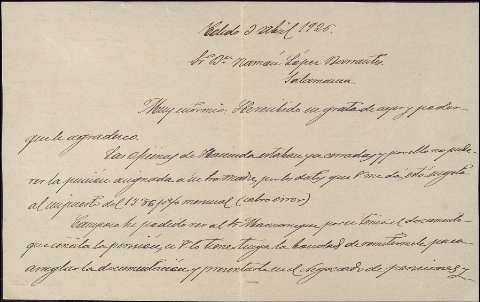 Toledo 3 Abril 1926.
Sr. Dn. Ramón López Barrantes.
Salamanca
Muy sr. mio: He recibido su grata de ayer y poder
que le agradezco.
Las oficinas de Hacienda estaban ya cerradas y por ello no pude
ver la pensión asignada a su madre, por los datos que V me da, está sugeta
al impuesto del mensual (salvo error)
Tampoco he podido ver al Sr. Manrique, por si tiene el documento
que concita la pension, si V lo tiene, tenga la bondad de remitirmelo para
arreglar la documentación y presentarla en el Negociado de pensiones y